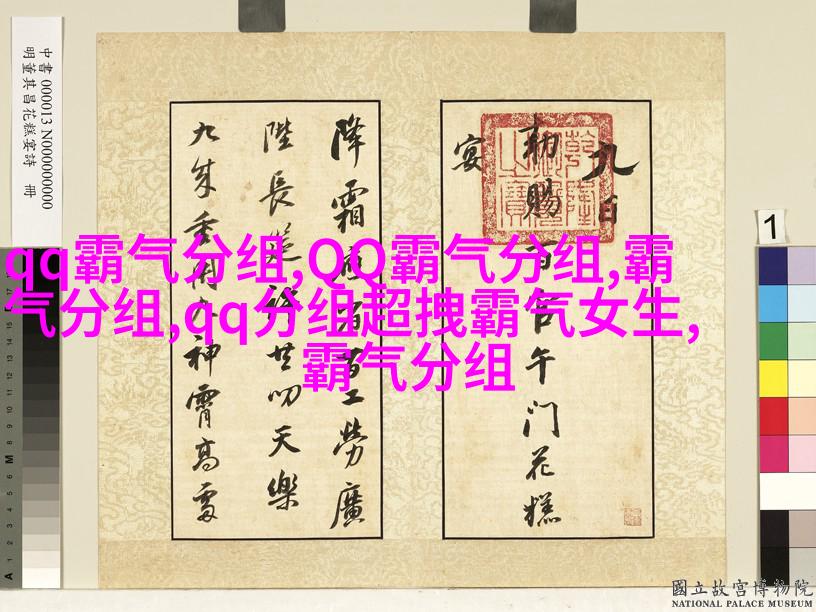 qq霸气分组,QQ霸气分组,霸
气分组,qq分组超拽霸气女生,
霸气分组
九日
勅賜百官午門花糕
宴
降霜省百工勞廣
陛長筵共叨天樂
九成重入神霄高處
中書 000013 N000000000
明董其昌花糕宴詩 冊
1
國立故宮博物院
NATIONAL PALACE MUSEUM